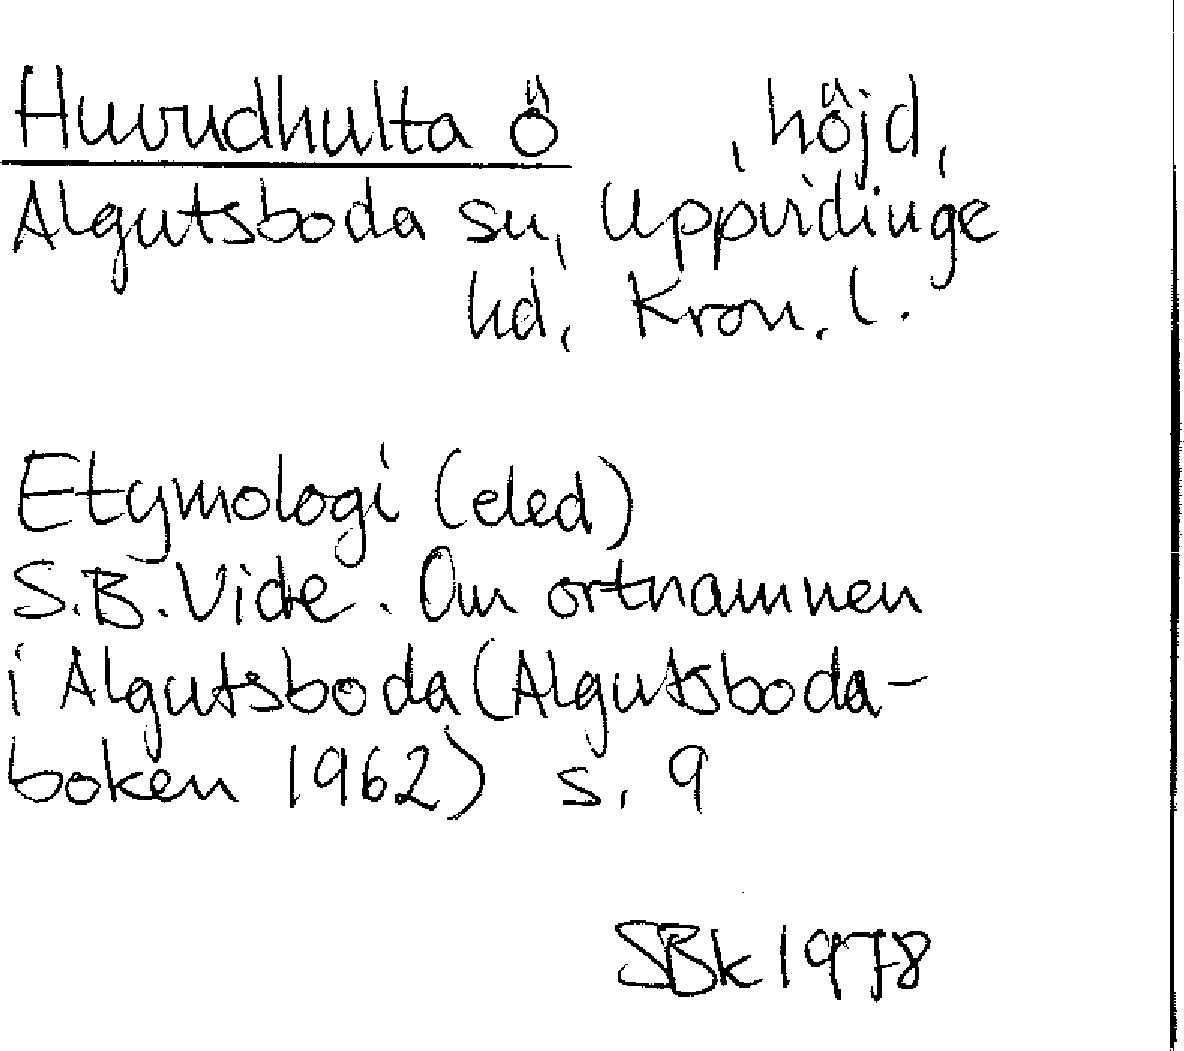 Huvudhulta ö , höjd,
Algutsboda sn, Uppvidinge
hd, Kron. l.
Etymologi (eled)
S.B. Vide. Om ortnamnen
i Algutsboda (Algutsboda-
boken 1962) s. 9
SBk 1978